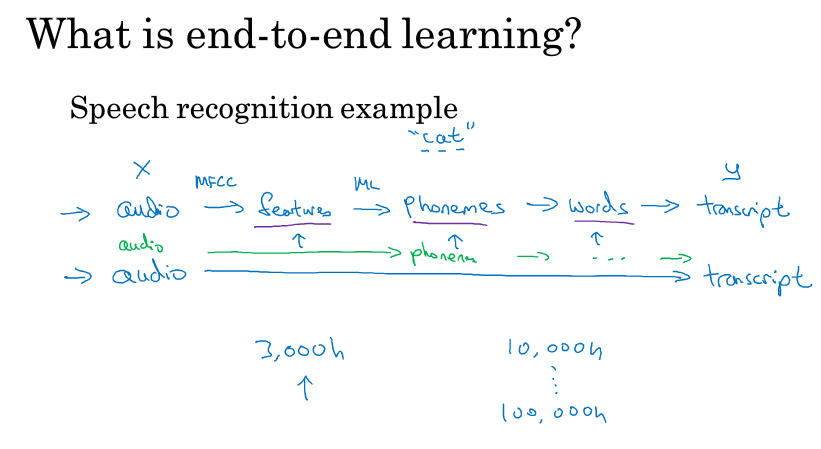 What is end-to-end learning?
Speech recognition example
"cat"
x y
MFCC ML
→ audio → features → Phonemes → words → transcript
↑ ↑ ↑
audio → phonemes → ... →
→ audio → transcript
3,000h 10,000h
↑ ⋮
100,000h